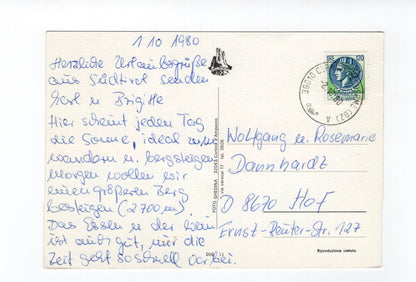 1 10 1980
Herzliche Urlaubsgrüße
aus Südtirol senden
Karl u Brigitte
Hier scheint jeden Tag
die Sonne, ideal zum
wandern u. bergsteigen
morgen wollen wir
einen größeren Berg
besteigen (2700 m)
Das Essen u der Wein
ist auch gut, nur die
Zeit geht so schnell vorbei.
FOTO GHEDINA 32043 Cortina d'Ampezzo
39010
(BZ) A
120
Wolfgang u. Rosemarie
Dannhardt
D 8670 Hof
Ernst-Reuter-Str. 127
Riproduzione vietata